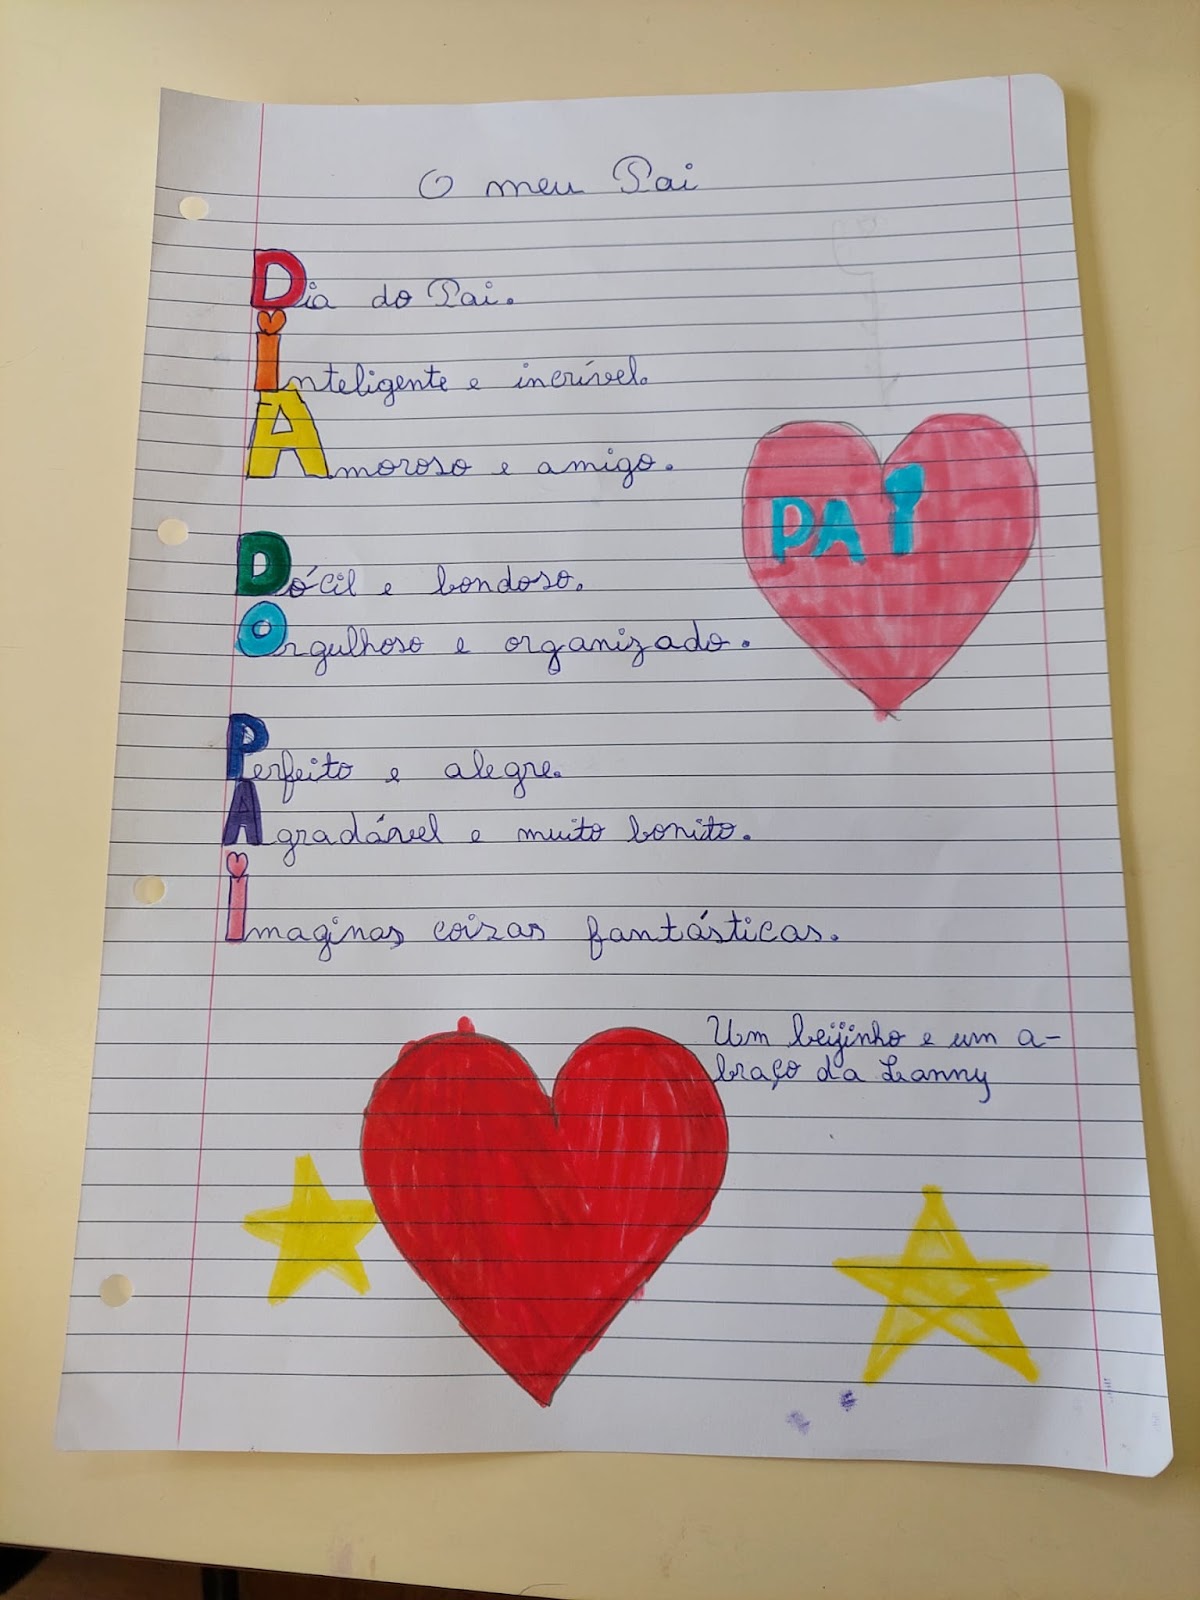 O meu Pai
Dia do Pai.
Inteligente e incrível.
Amoroso e amigo.
PAI
Dócil e bondoso.
Orgulhoso e organizado.
Perfeito e alegre.
Agradável e muito bonito.
Imaginas coizas fantásticas.
Um beijinho e um a-
braço da Lanny